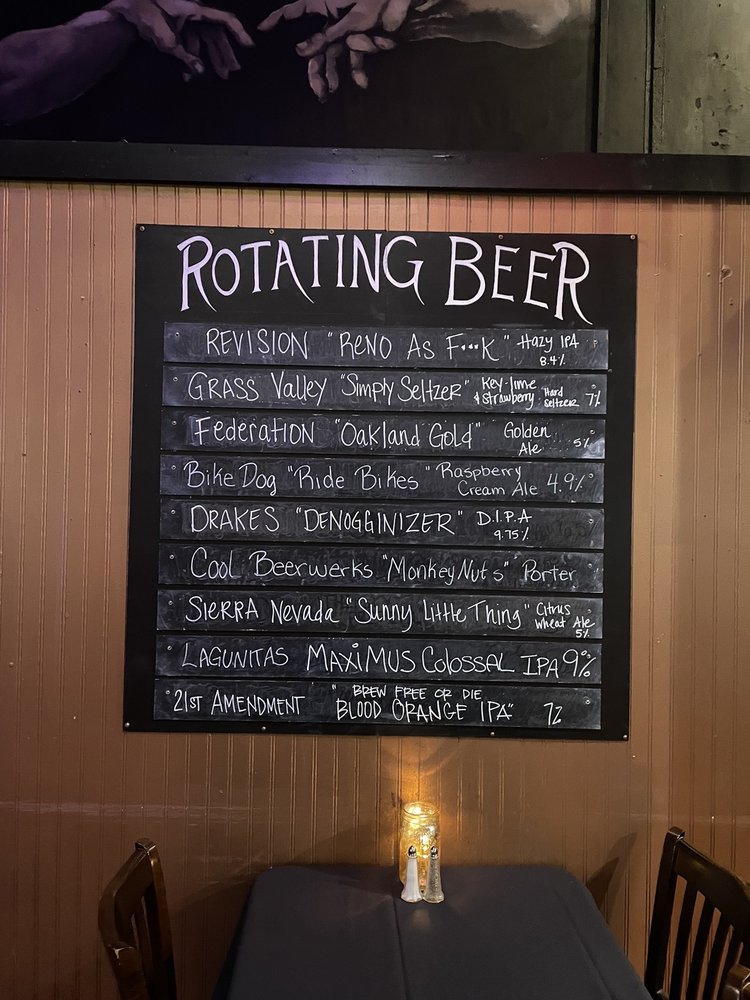 ROTATING BEER
REVISION "RENO AS F***K" Hazy IPA 8.4%
GRASS Valley "Simply Seltzer" Key-lime & strawberry Hard Seltzer 7%
Federation "Oakland Gold" Golden Ale 5%
Bike Dog "Ride Bikes" Raspberry Cream Ale 4.9%
DRAKES "DENOGGINIZER" D.I.P.A 9.75%
Cool Beerwerks "Monkey Nuts" Porter
SIERRA Nevada "Sunny Little Thing" Citrus Wheat Ale 5%
LAGUNITAS MAXiMUS Colossal IPA 9%
21ST AMENDMENT "BREW FREE OR DIE BLOOD ORANGE IPA" 7%